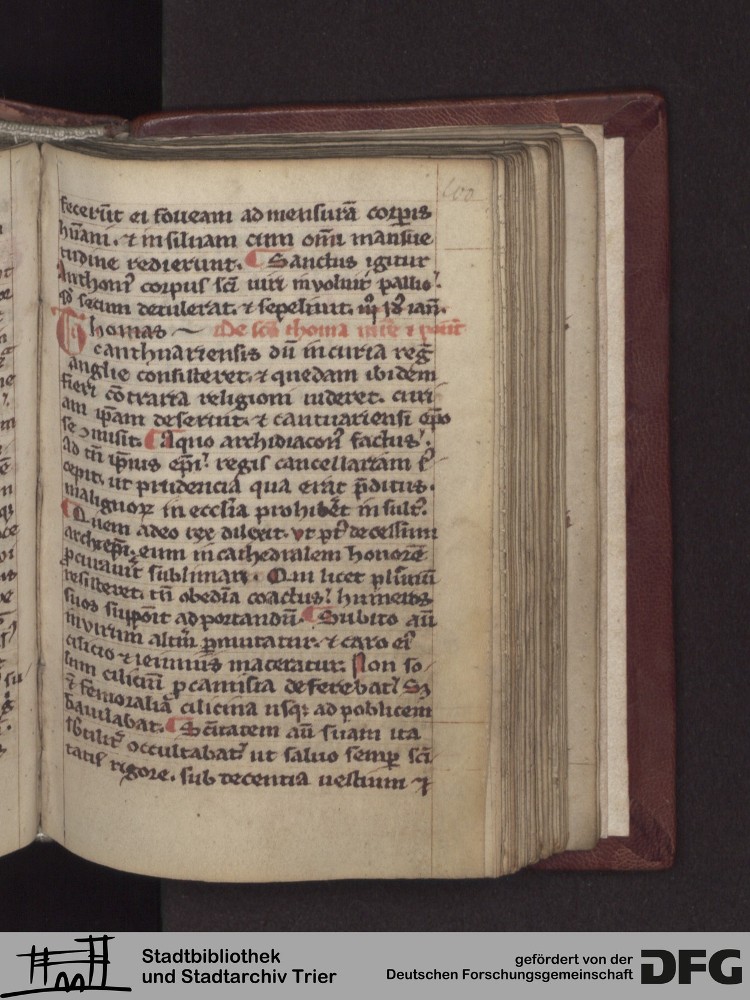 fecerūt ei foueam ad mensurā corꝑis
hūani. ⁊ in siluam cum omī mansue
tudine redierunt. ¶ Sanctus igitur
Anthoniꝰ corpus sc̄i uiri inuoluit pallio.
qd̓ secum detulerat. ⁊ sepeliuit. iiij id̓ ian̄.
Thomas ~ De sc̄o thoma
canthuariensis dū in curia reḡ
anglie consisteret. ⁊ quedam ibidem
fieri cōtraria religioni uideret. curi
am ip̄am deseruit. ⁊ cantuariensi ep̄o
se ꝯmisit. ¶ A quo archidiaconꝰ factus.
ad tn̄ ip̄ius ep̄i regis cancellariam ſ
cepit. ut prudencia qua erat p̄ditus.
malignoꝝ in ecclīa prohib̓et insultꝰ.
¶ Quem adeo rex dilexit. vt pꝰ decessum
archiep̄i. eum in cathedralem honorē
ꝓcurauit sublimari. Qui licet plurimū
resisteret. tn̄ obediā coactus humeros
suos supponit ad portandū. ¶ Subito aū
in virum altm̄ ꝑmutatur. ⁊ caro eiꝰ
cilicio ⁊ ieiuniis maceratur. Non so
lum ciliciū ꝓ camisia deferebat. Sꝫ
⁊ femoralia cilicina usqꝫ ad poplicem
baiulabat. ¶ Sc̄itatem aū suam ita
sb̓tilit̓ occultabat ut saluo semꝑ sc̄i
tatis rigore. sub decentia uestium ⁊
100
Stadtbibliothek
und Stadtarchiv Trier
gefördert von der
Deutschen Forschungsgemeinschaft
DFG